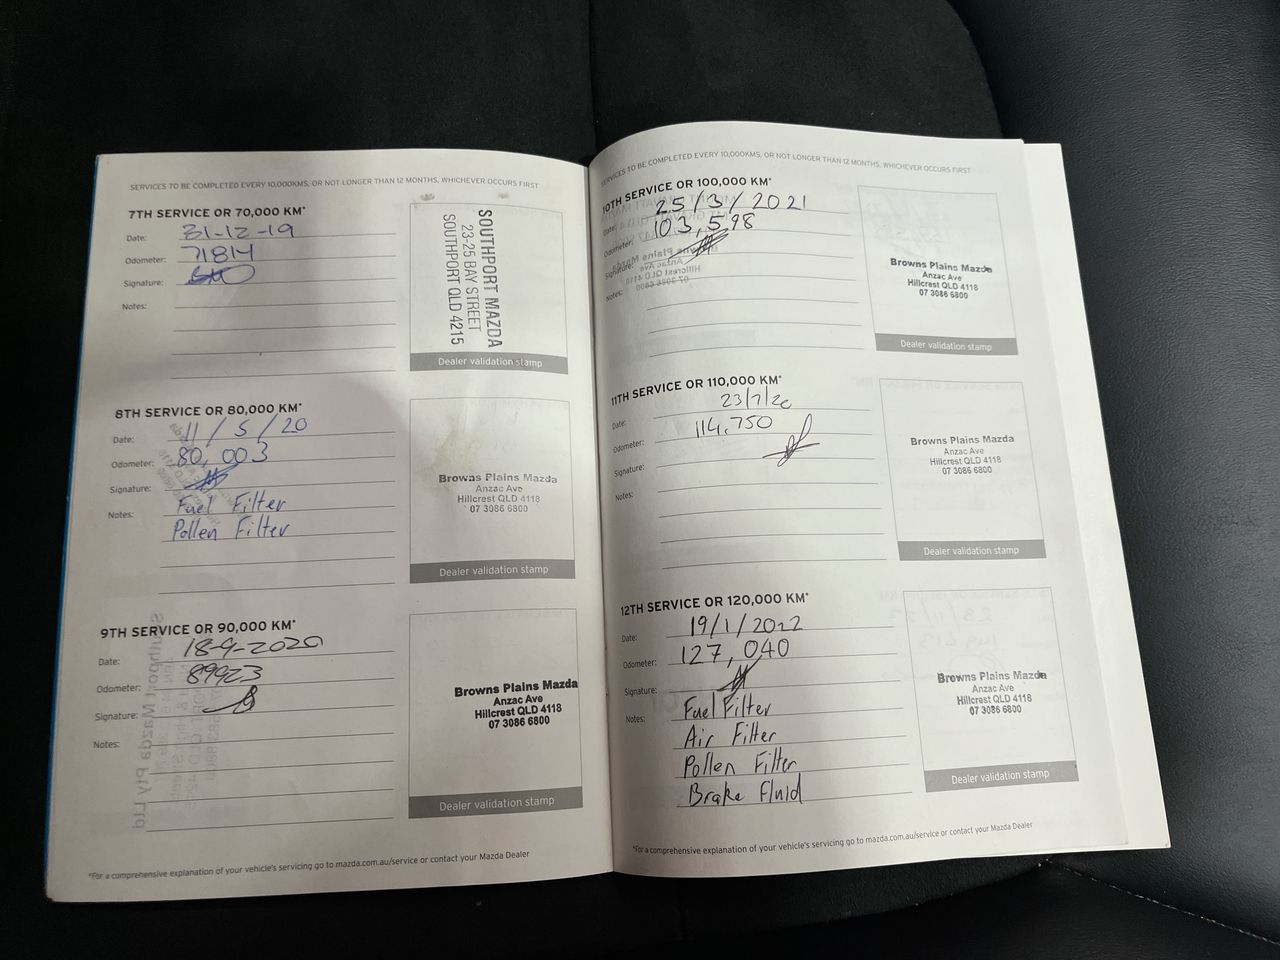 SERVICES TO BE COMPLETED EVERY 10,000KMS, OR NOT LONGER THAN 12 MONTHS, WHICHEVER OCCURS FIRST
7TH SERVICE OR 70,000 KM*
Date: 31-12-19
Odometer: 71814
Signature:
Notes:
SOUTHPORT MAZDA
23-25 BAY STREET
SOUTHPORT QLD 4215
Dealer validation stamp
8TH SERVICE OR 80,000 KM*
Date: 11/5/20
Odometer: 80,003
Signature:
Notes: Fuel Filter
Pollen Filter
Browns Plains Mazda
Anzac Ave
Hillcrest QLD 4118
07 3086 6800
Dealer validation stamp
9TH SERVICE OR 90,000 KM*
Date: 18-9-2020
Odometer: 89923
Signature:
Notes:
Browns Plains Mazda
Anzac Ave
Hillcrest QLD 4118
07 3086 6800
Dealer validation stamp
*For a comprehensive explanation of your vehicle's servicing go to mazda.com.au/service or contact your Mazda Dealer
SERVICES TO BE COMPLETED EVERY 10,000KMS, OR NOT LONGER THAN 12 MONTHS, WHICHEVER OCCURS FIRST
10TH SERVICE OR 100,000 KM*
Date: 25/3/2021
Odometer: 103,598
Signature:
Notes:
Browns Plains Mazda
Anzac Ave
Hillcrest QLD 4118
07 3086 6800
Dealer validation stamp
11TH SERVICE OR 110,000 KM*
Date: 23/7/20
Odometer: 114,750
Signature:
Notes:
Browns Plains Mazda
Anzac Ave
Hillcrest QLD 4118
07 3086 6800
Dealer validation stamp
12TH SERVICE OR 120,000 KM*
Date: 19/1/2022
Odometer: 127,040
Signature:
Notes: Fuel Filter
Air Filter
Pollen Filter
Brake Fluid
Browns Plains Mazda
Anzac Ave
Hillcrest QLD 4118
07 3086 6800
Dealer validation stamp
*For a comprehensive explanation of your vehicle's servicing go to mazda.com.au/service or contact your Mazda Dealer